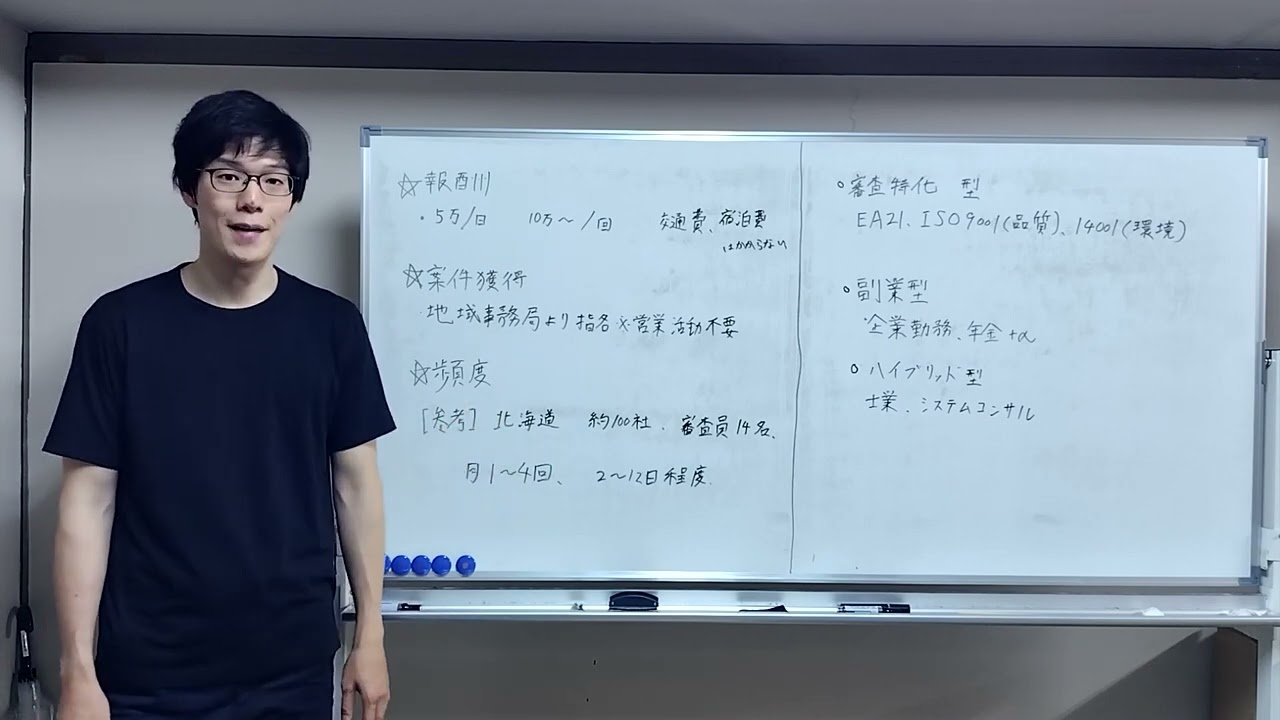 ☆報酬
・5万/日 10万～/回 交通費、宿泊費
はかからない
☆案件獲得
・地域事務局より指名 ※営業活動不要
☆頻度
[参考] 北海道 約100社、審査員14名、
月1～4回、 2～12日程度
○審査特化 型
EA21、ISO9001(品質)、14001(環境)
○副業型
企業勤務、年金+α
○ハイブリッド型
士業、システムコンサル